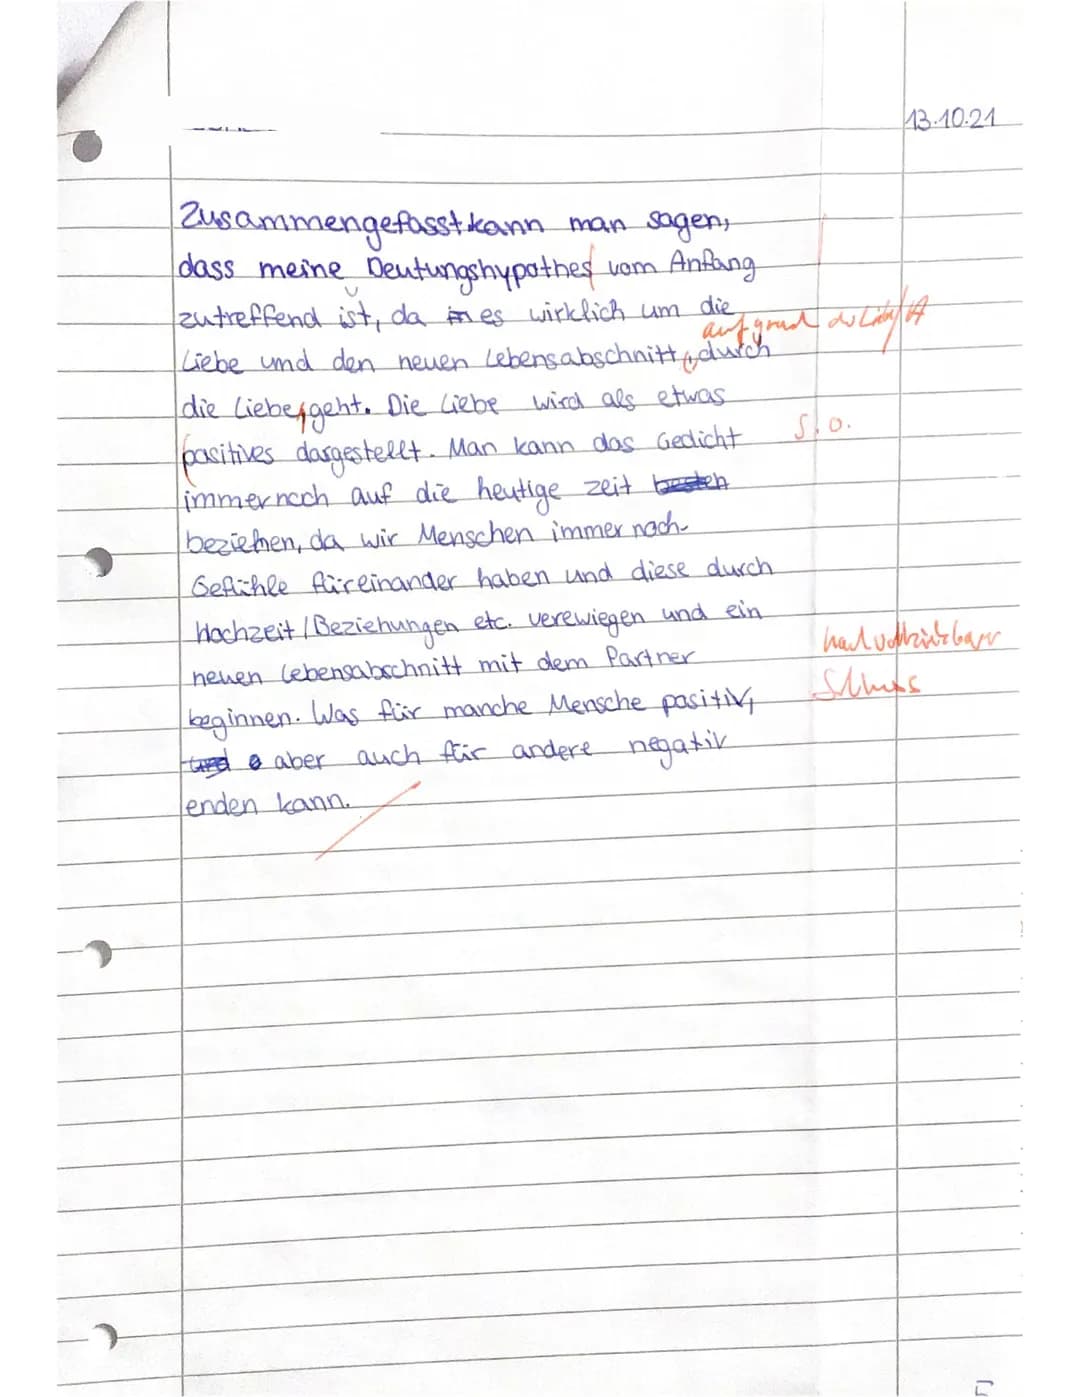 13.10.21
Zusammengefasst kann man sagen,
dass meine Deutungshypothes vom Anfang
zutreffend ist, da es wirklich um die
aufgrund der Liebe/A
Liebe und den neuen Lebensabschnitt, durch
die Liebe, geht. Die Liebe wird als etwas
positives dargestellt. Man kann das Gedicht
s. o.
immer noch auf die heutige zeit
beziehen, da wir Menschen immer noch
Gefühle füreinander haben und diese durch
Hochzeit/Beziehungen etc. verewiegen und ein
neuen Lebensabschnitt mit dem Partner
nachvollziehbarer
Schluss
beginnen. Was für manche Mensche positiv,
aber auch für andere negativ
enden kann.